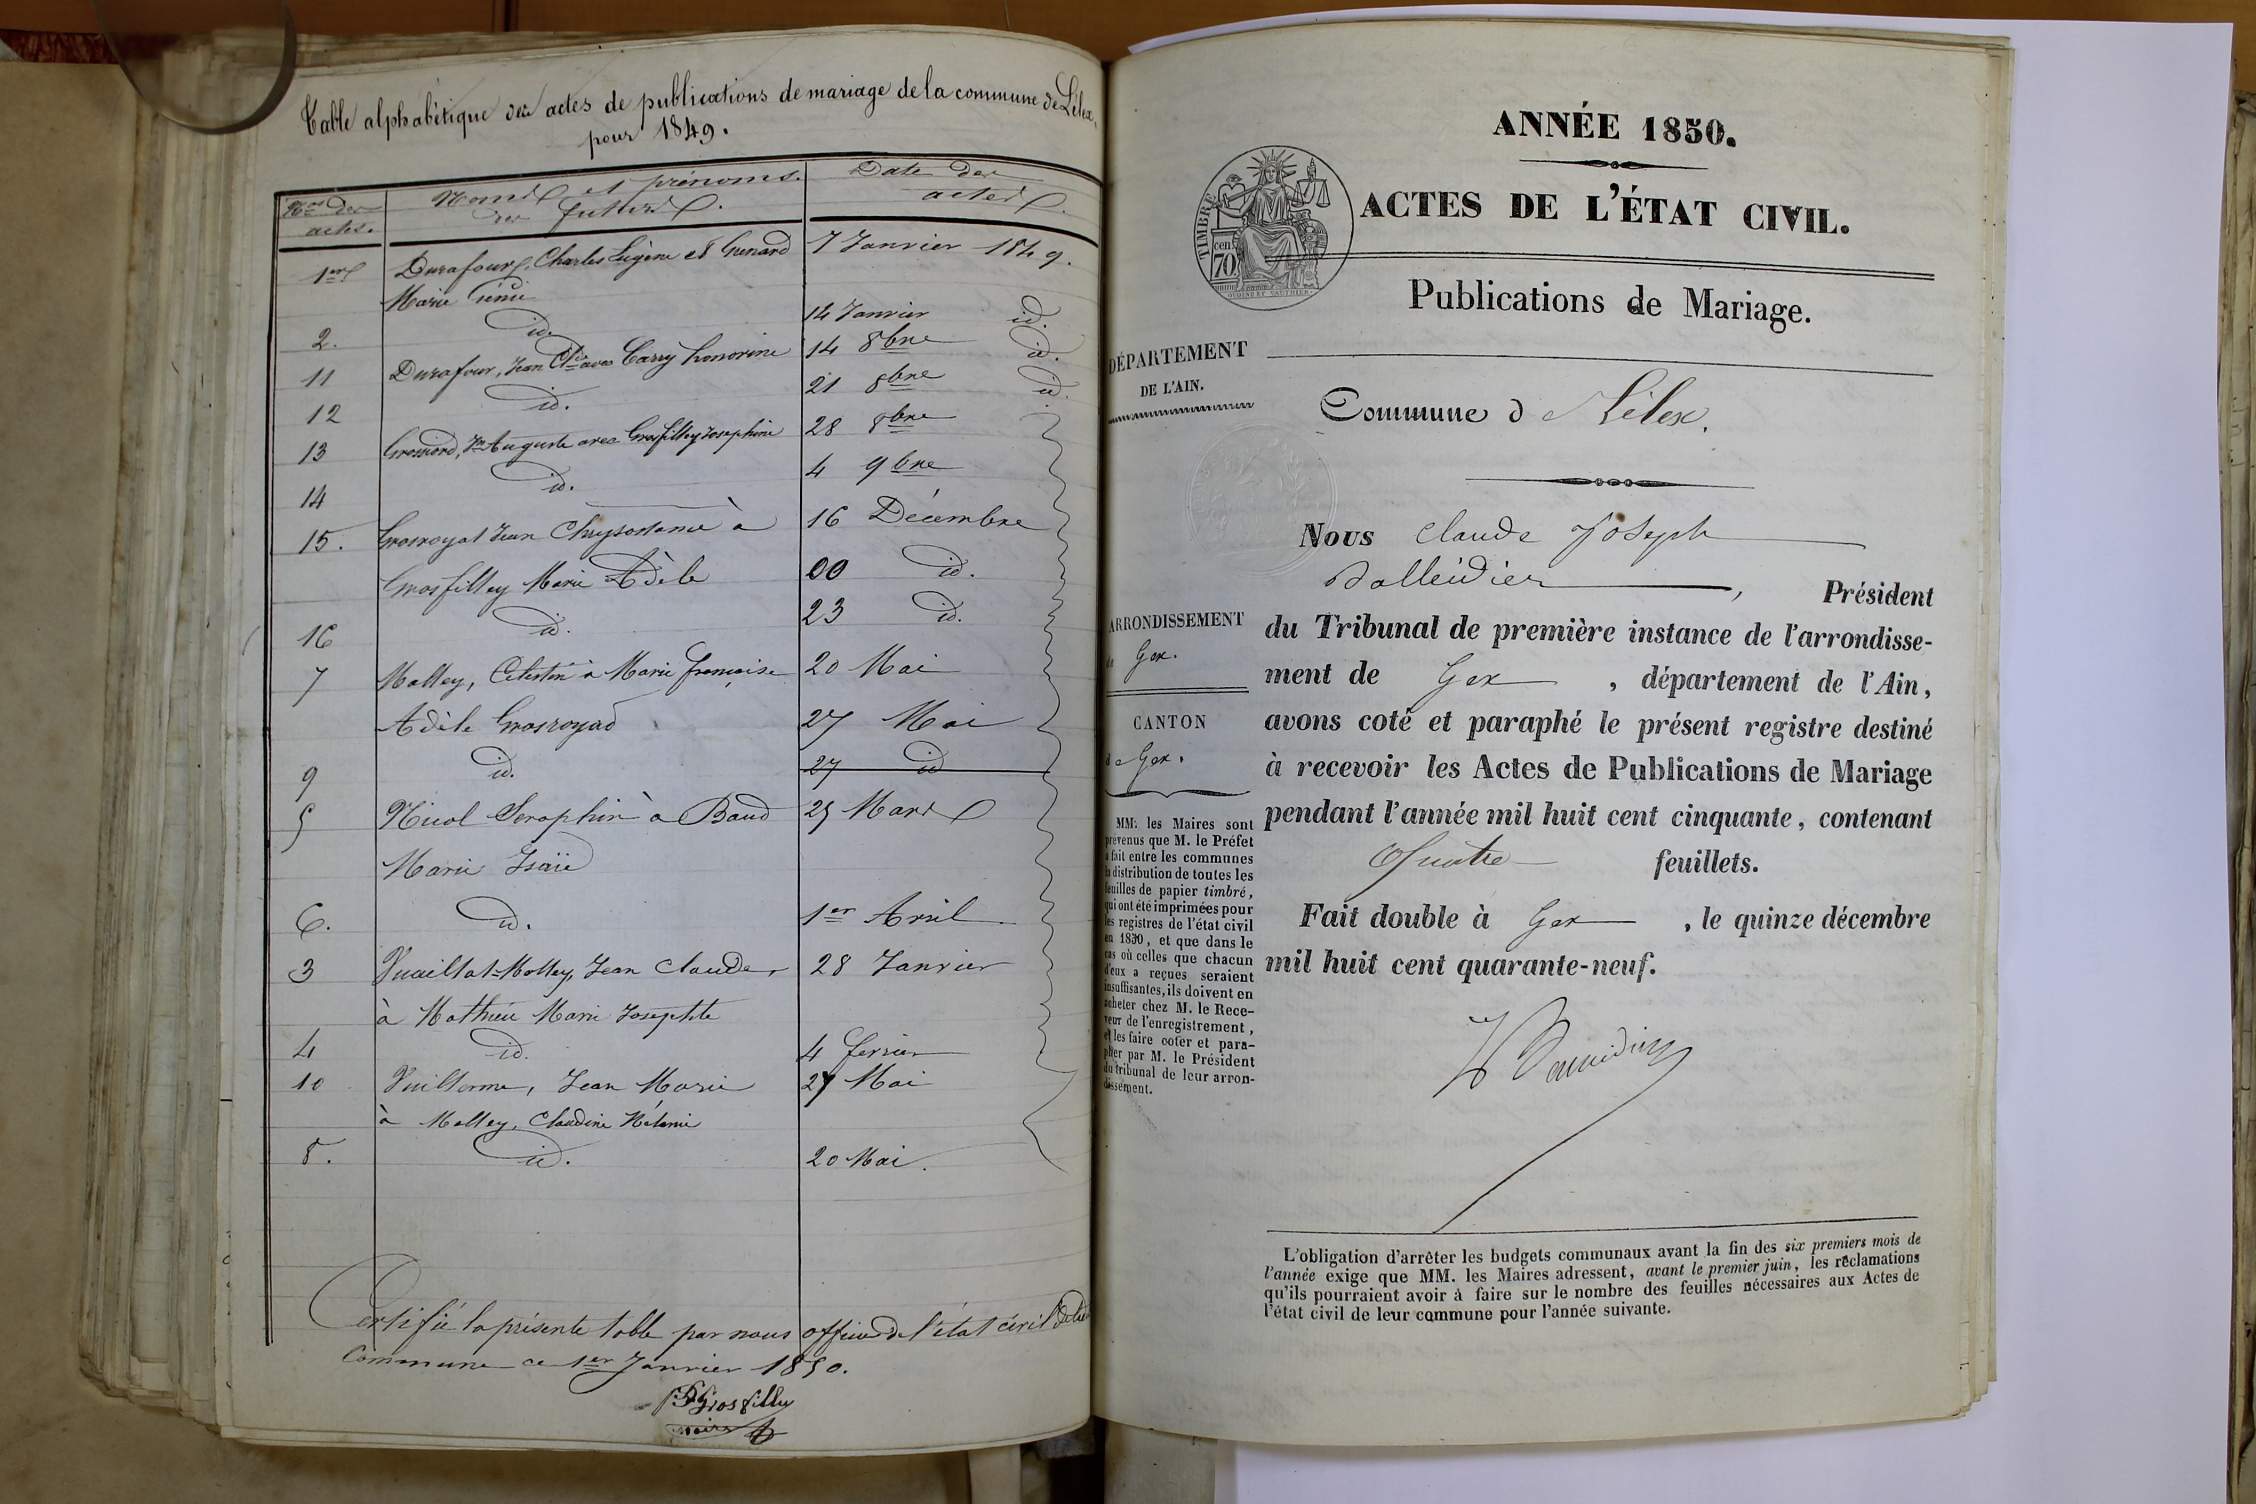 Table alphabétique des actes de publications de mariage de la commune de Lélex,
pour 1849.
Nos des
actes.
Noms et prénoms.
des futurs.
Date des
actes.
1er Durafour, Charles Eugène et Grenard 7 Janvier 1849.
Marie
2. id. 14 Janvier id.
11 Durafour, Jean Cde avec Carry honorine 14 8bre id.
12 id. 21 8bre id.
13 Grosriond, Jn Auguste avec Grosfilley Josephine 28 8bre
14 id. 4 9bre
15. Grosroyat Jean Chrysostome à 16 Décembre
Grosfilley Marie Adèle 00 id.
16 id. 23 id.
7 Molley, Celestin à Marie françoise 20 Mai
Adèle Grosroyad 27 Mai
9 id. 27 id
5 Nicol Seraphin à Baud 25 Mars
Marie Isaïe
6. id. 1er Avril
3 Vuaillat-Molley, Jean Claude, 28 Janvier
à Mathieu Marie Josephte
4 id. 4 fevrier
10 Vuillerme, Jean Marie 27 Mai
à Molley, Claudine Mélanie
8. id. 20 Mai.
Certifié la présente table par nous officier de l'état civil de la
Commune ce 1er Janvier 1850.
Grosfilley
maire
ANNÉE 1850.
TIMBRE
cen
70
OUDINÉ ET GAUTHIER
ACTES DE L'ÉTAT CIVIL.
Publications de Mariage.
DÉPARTEMENT
DE L'AIN.
Commune d e Lélex.
Nous Claude Joseph
Balleidier, Président
du Tribunal de première instance de l'arrondisse-
ment de Gex, département de l'Ain,
avons coté et paraphé le présent registre destiné
à recevoir les Actes de Publications de Mariage
pendant l'année mil huit cent cinquante, contenant
Quatre feuillets.
Fait double à Gex, le quinze décembre
mil huit cent quarante-neuf.
ARRONDISSEMENT
de Gex.
CANTON
de Gex.
MM. les Maires sont
prévenus que M. le Préfet
a fait entre les communes
la distribution de toutes les
feuilles de papier timbré,
qui ont été imprimées pour
les registres de l'état civil
en 1850, et que dans le
cas où celles que chacun
d'eux a reçues seraient
insuffisantes, ils doivent en
acheter chez M. le Rece-
veur de l'enregistrement,
et les faire coter et para-
pher par M. le Président
du tribunal de leur arron-
dissement.
L'obligation d'arrêter les budgets communaux avant la fin des six premiers mois de
l'année exige que MM. les Maires adressent, avant le premier juin, les réclamations
qu'ils pourraient avoir à faire sur le nombre des feuilles nécessaires aux Actes de
l'état civil de leur commune pour l'année suivante.